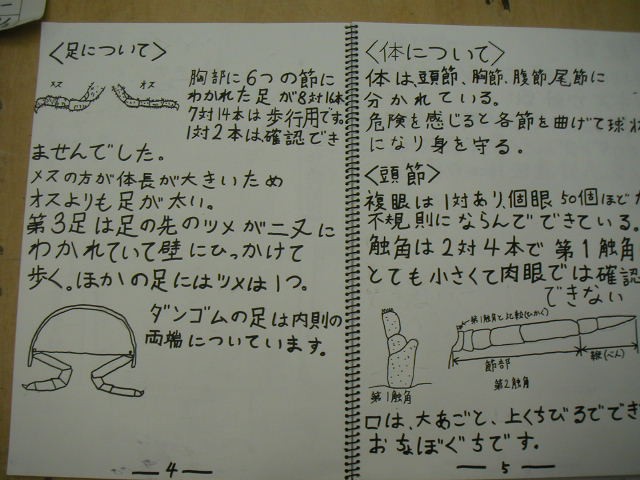 〈足について〉
メス
オス
胸部に6つの節に
わかれた足が8対16本
7対14本は歩行用です。
1対2本は、確認でき
ませんでした。
メスの方が体長が大きいため
オスよりも足が太い。
第3足は足の先のツメが二又に
わかれていて壁にひっかけて
歩く。ほかの足にはツメは1つ。
ダンゴムの足は内則の
両端についています。
4
〈体について〉
体は、頭節、胸節、腹節、尾節に
分かれている。
危険を感じると各節を曲げて球状
になり身を守る。
〈頭節〉
複眼は1対あり、個眼50個ほどが
不規則にならんでできている。
触角は2対4本で第1触角
とても小さくて肉眼では確認
できない
第1触角と比較(ひかく)
節部
鞭(べん)
第1触角
第2触角
口は、大あごと、上くちびるでできた
おちょぼぐちです。
5